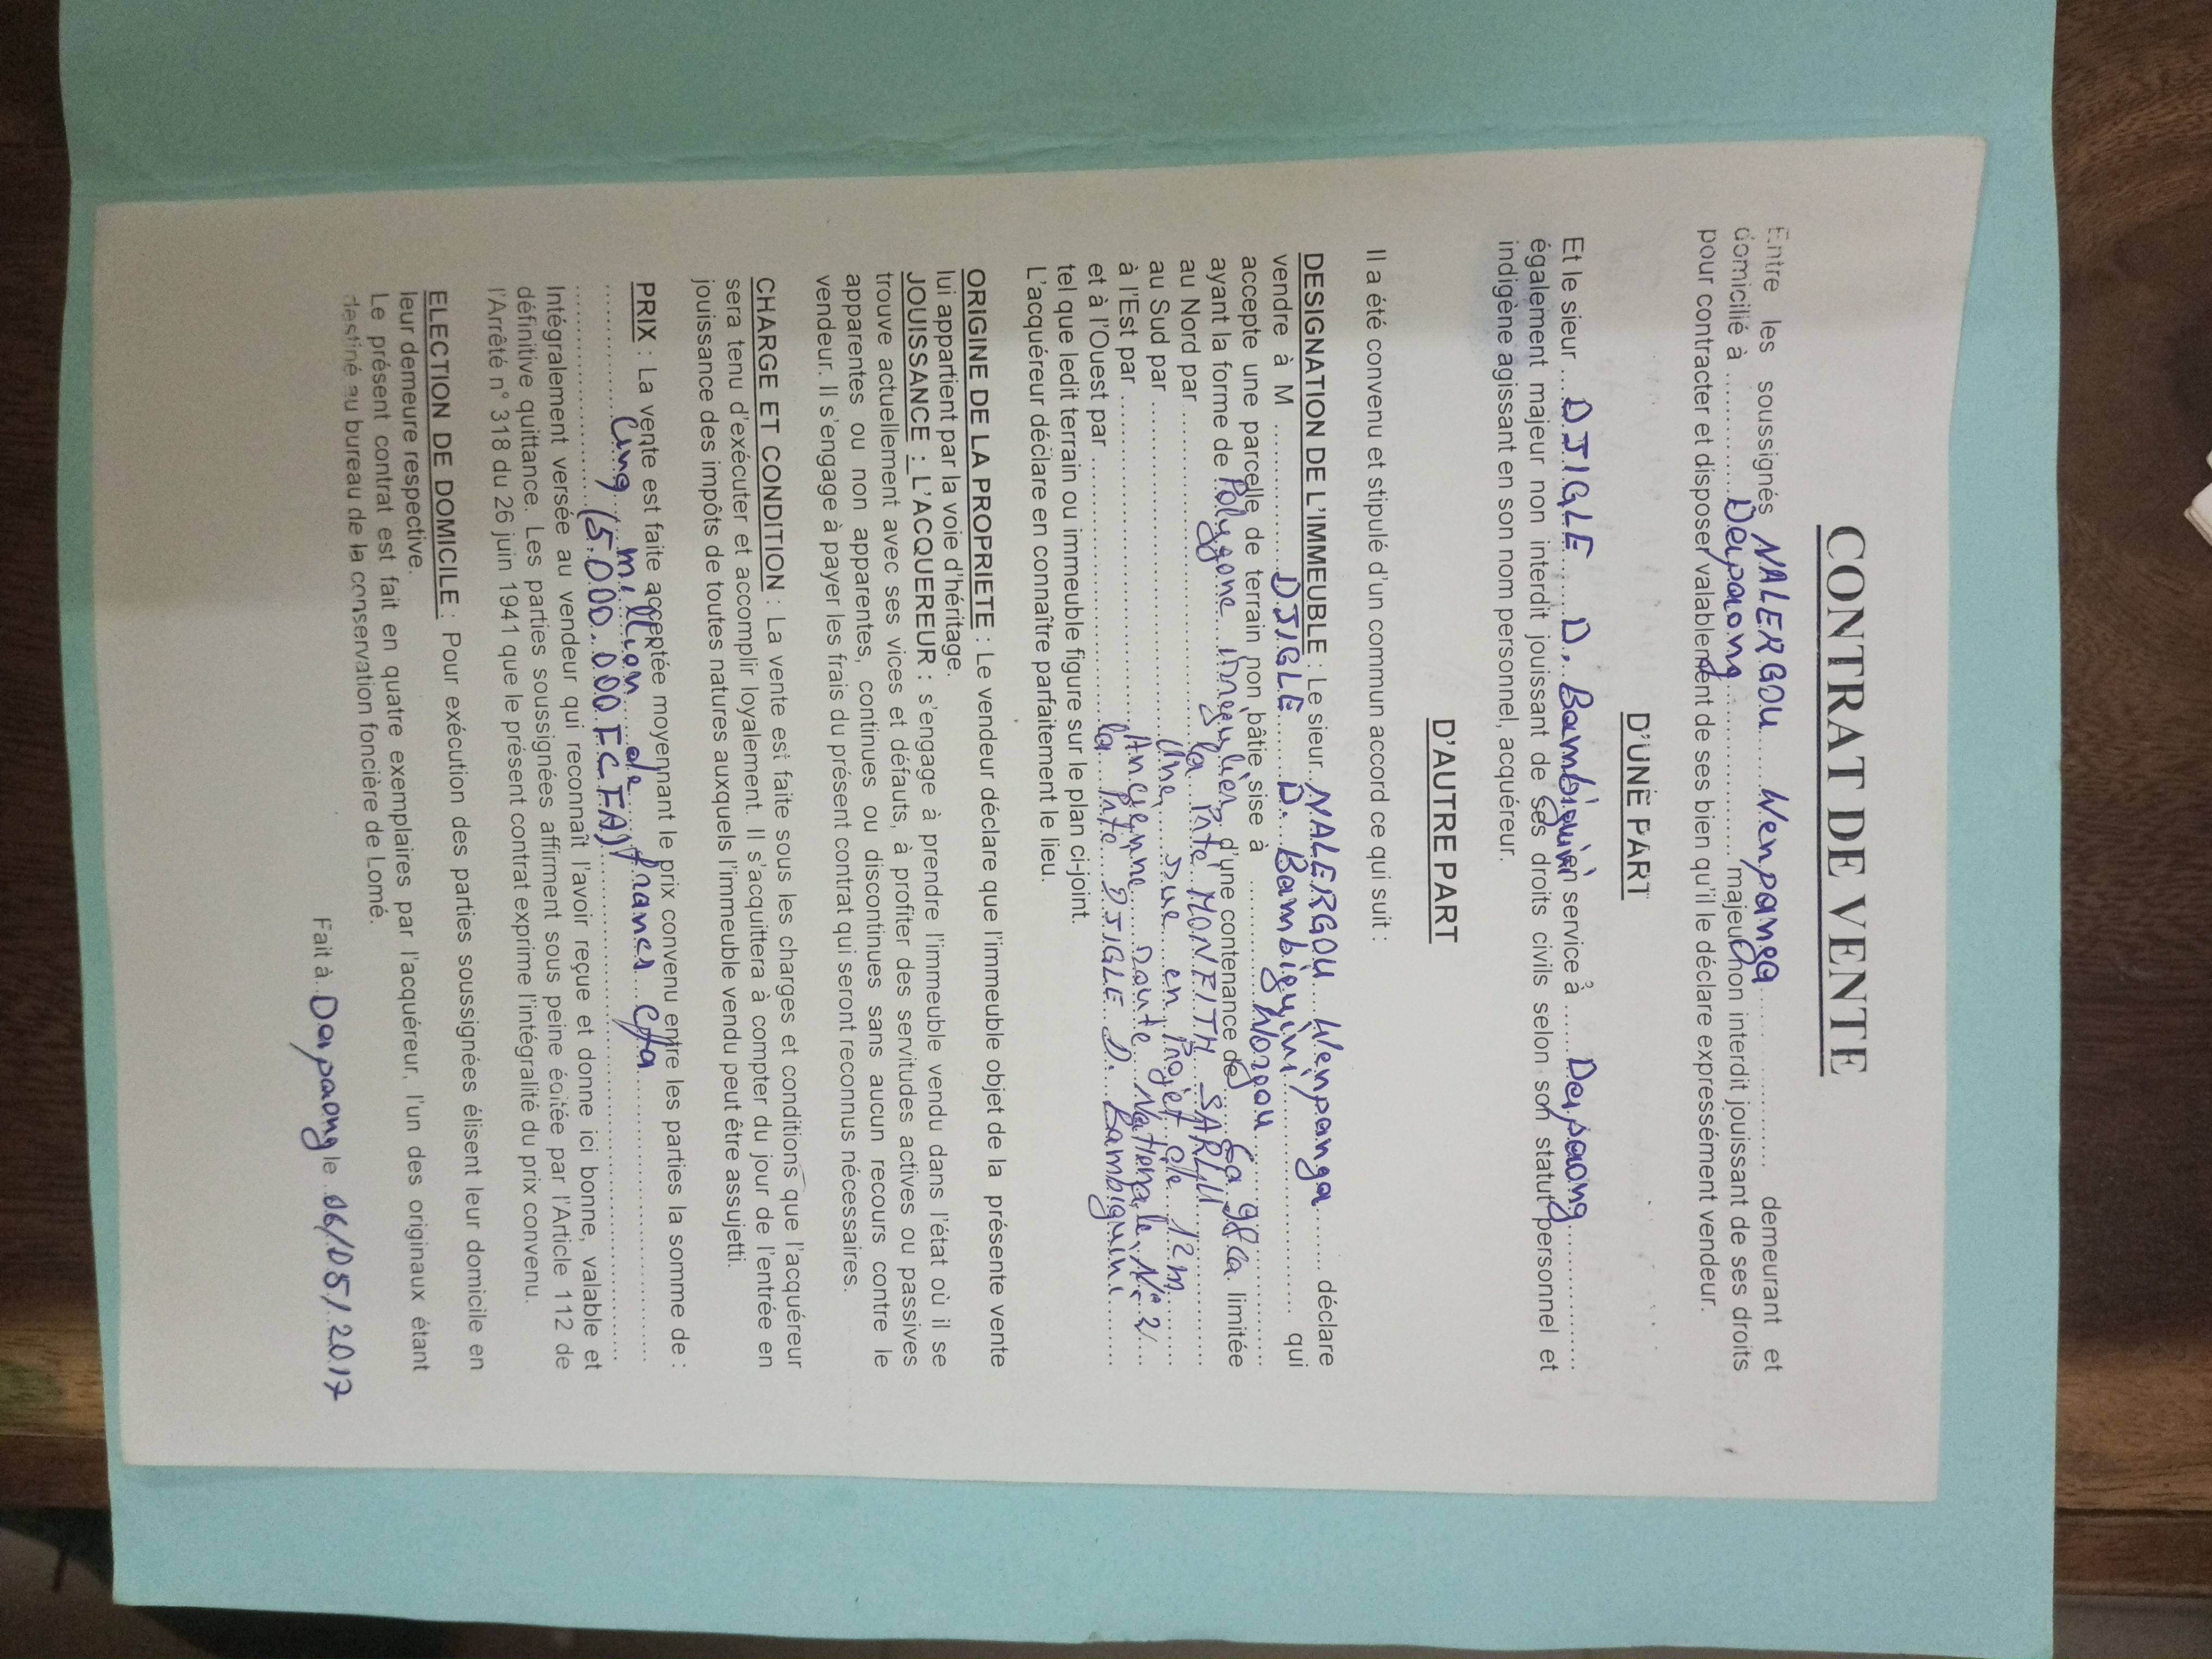 CONTRAT DE VENTE
Entre les soussignés NALERGOU Wenpanga demeurant et
domicilié à Dapaong majeur non interdit jouissant de ses droits
pour contracter et disposer valablement de ses bien qu'il le déclare expressément vendeur.
D'UNE PART
Et le sieur DJIGLE D. Bambiguini en service à Dapaong
également majeur non interdit jouissant de ses droits civils selon son statut personnel et
indigène agissant en son nom personnel, acquéreur.
D'AUTRE PART
Il a été convenu et stipulé d'un commun accord ce qui suit :
DESIGNATION DE L'IMMEUBLE : Le sieur NALERGOU Wenpanga déclare
vendre à M DJIGLE D. Bambiguini qui
accepte une parcelle de terrain non bâtie sise à Worgou
ayant la forme de Polygone irrégulier d'une contenance de 6a 98ca limitée
au Nord par la Pté MONFITH SARLU
au Sud par Une rue en Projet de 12m
à l'Est par Ancienne Route Nationale N° 2
et à l'Ouest par la Pté DJIGLE D. Bambiguini
tel que ledit terrain ou immeuble figure sur le plan ci-joint.
L'acquéreur déclare en connaître parfaitement le lieu.
ORIGINE DE LA PROPRIETE : Le vendeur déclare que l'immeuble objet de la présente vente
lui appartient par la voie d'héritage.
JOUISSANCE : L'ACQUEREUR : s'engage à prendre l'immeuble vendu dans l'état où il se
trouve actuellement avec ses vices et défauts, à profiter des servitudes actives ou passives
apparentes ou non apparentes, continues ou discontinues sans aucun recours contre le
vendeur. Il s'engage à payer les frais du présent contrat qui seront reconnus nécessaires.
CHARGE ET CONDITION : La vente est faite sous les charges et conditions que l'acquéreur
sera tenu d'exécuter et accomplir loyalement. Il s'acquittera à compter du jour de l'entrée en
jouissance des impôts de toutes natures auxquels l'immeuble vendu peut être assujetti.
PRIX : La vente est faite acceptée moyennant le prix convenu entre les parties la somme de :
Cinq million de francs Cfa
(5.000.000 FCFA)
Intégralement versée au vendeur qui reconnaît l'avoir reçue et donne ici bonne, valable et
définitive quittance. Les parties soussignées affirment sous peine éditée par l'Article 112 de
l'Arrêté n° 318 du 26 juin 1941 que le présent contrat exprime l'intégralité du prix convenu.
ELECTION DE DOMICILE : Pour exécution des parties soussignées élisent leur domicile en
leur demeure respective.
Le présent contrat est fait en quatre exemplaires par l'acquéreur, l'un des originaux étant
destiné au bureau de la conservation foncière de Lomé.
Fait à Dapaong le 06/05/2017